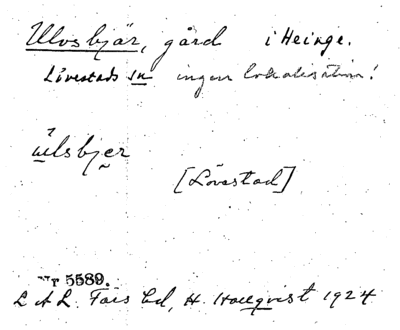 Ulvsbjär, gård i Heinge.
Lövestads sn ingen lokalisation!
ulsbjer
[Lövestad]
Nr 5589.
L A L. Färs hd, H. Hallqvist 1924